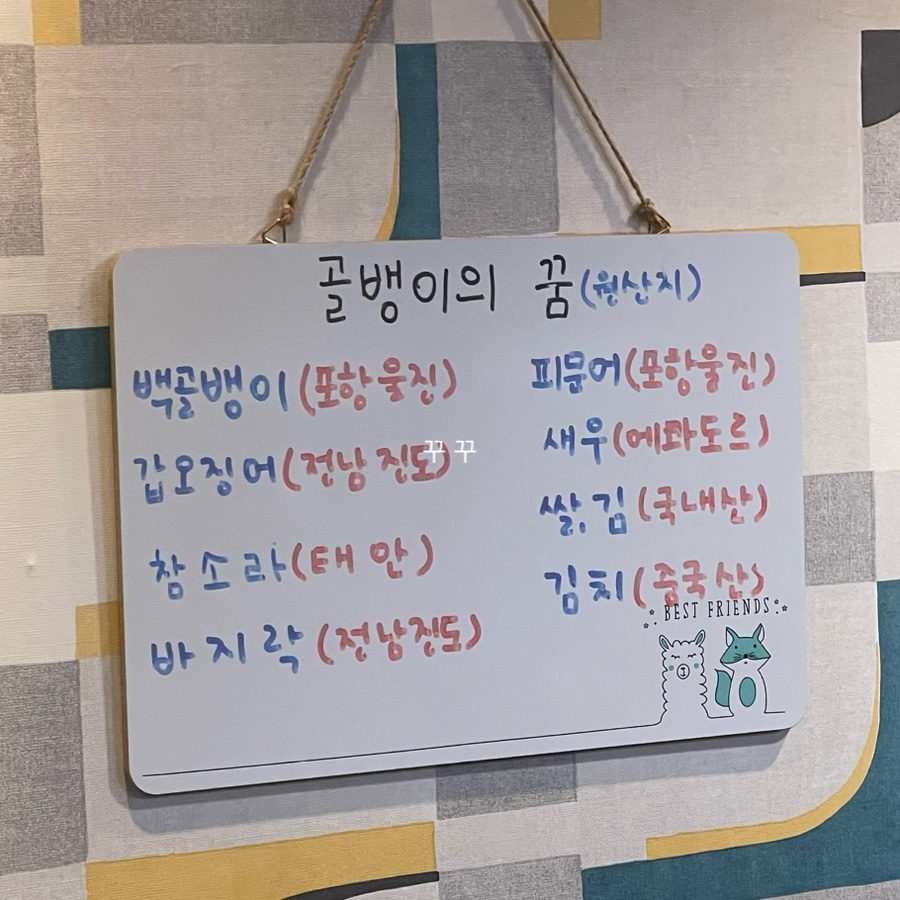 골뱅이의 꿈(원산지)
백골뱅이(포항울진)
갑오징어(전남진도)
참소라(태안)
바지락(전남진도)
피문어(포항울진)
새우(에콰도르)
쌀,김(국내산)
김치(중국산)
BEST FRIENDS
꾸꾸